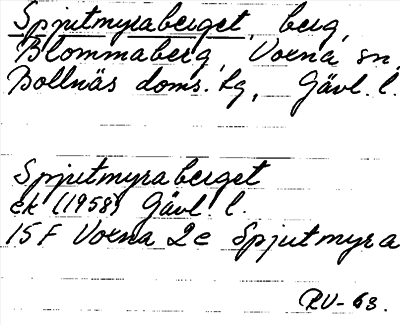 Spjutmyraberget, berg,
Blommaberg, Voxna sn.
Bollnäs doms. lg, Gävl. l.
Spjutmyraberget
ek (1958) Gävl l.
15F Voxna 2c Spjutmyra
RU-63.